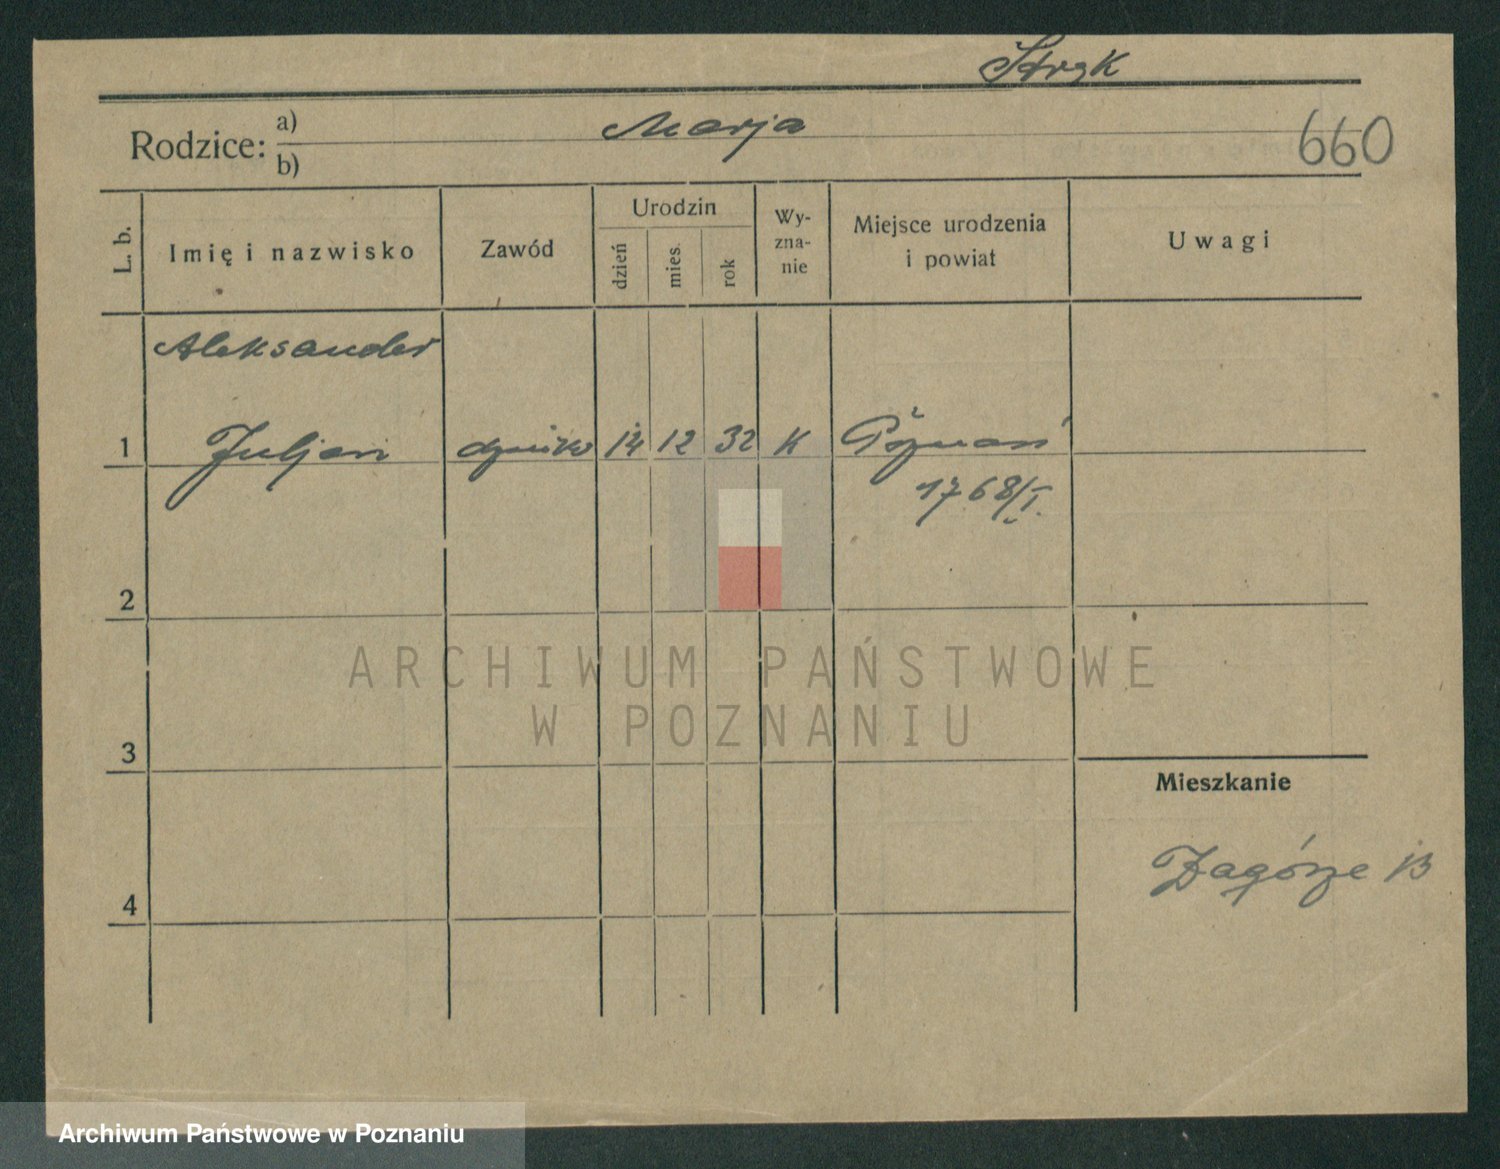 Stryk
Rodzice: a) Marja
b)
660
L. b.
Imię i nazwisko
Zawód
Urodzin
dzień
mies.
rok
Wy-
zna-
nie
Miejsce urodzenia
i powiat
Uwagi
Aleksander
1 Juljan 14 12 32 K Poznań
1768/I.
2
3
4
Mieszkanie
Zagórze 13
ARCHIWUM PAŃSTWOWE
W POZNANIU
Archiwum Państwowe w Poznaniu